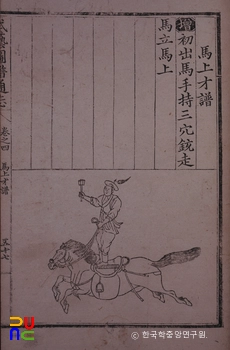 馬上才譜
增初出馬手持三穴銃走
馬立馬上
武藝圖譜通志
卷之四
馬上才譜
五十七
© 한국학중앙연구원